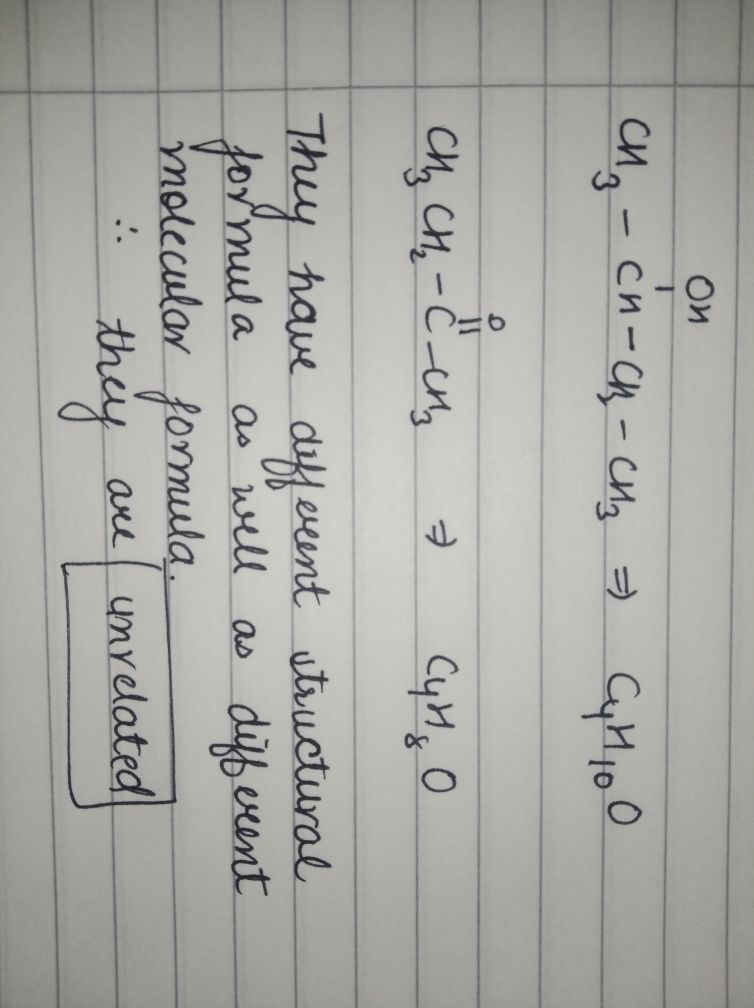 OH
CH₃ – CH – CH₂ – CH₃ ⇒ C₄H₁₀O
O
CH₃ CH₂ – C – CH₃ ⇒ C₄H₈O
They have different structural
formula as well as different
molecular formula.
∴ they are unrelated